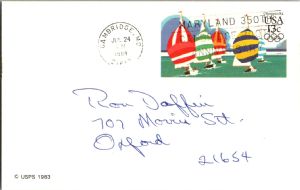 CAMBRIDGE, MD
JUL 24
1984
MARYLAND 350TH
USA
13c
Ron Daffin
707 Morris St.
Oxford
21654
© USPS 1983